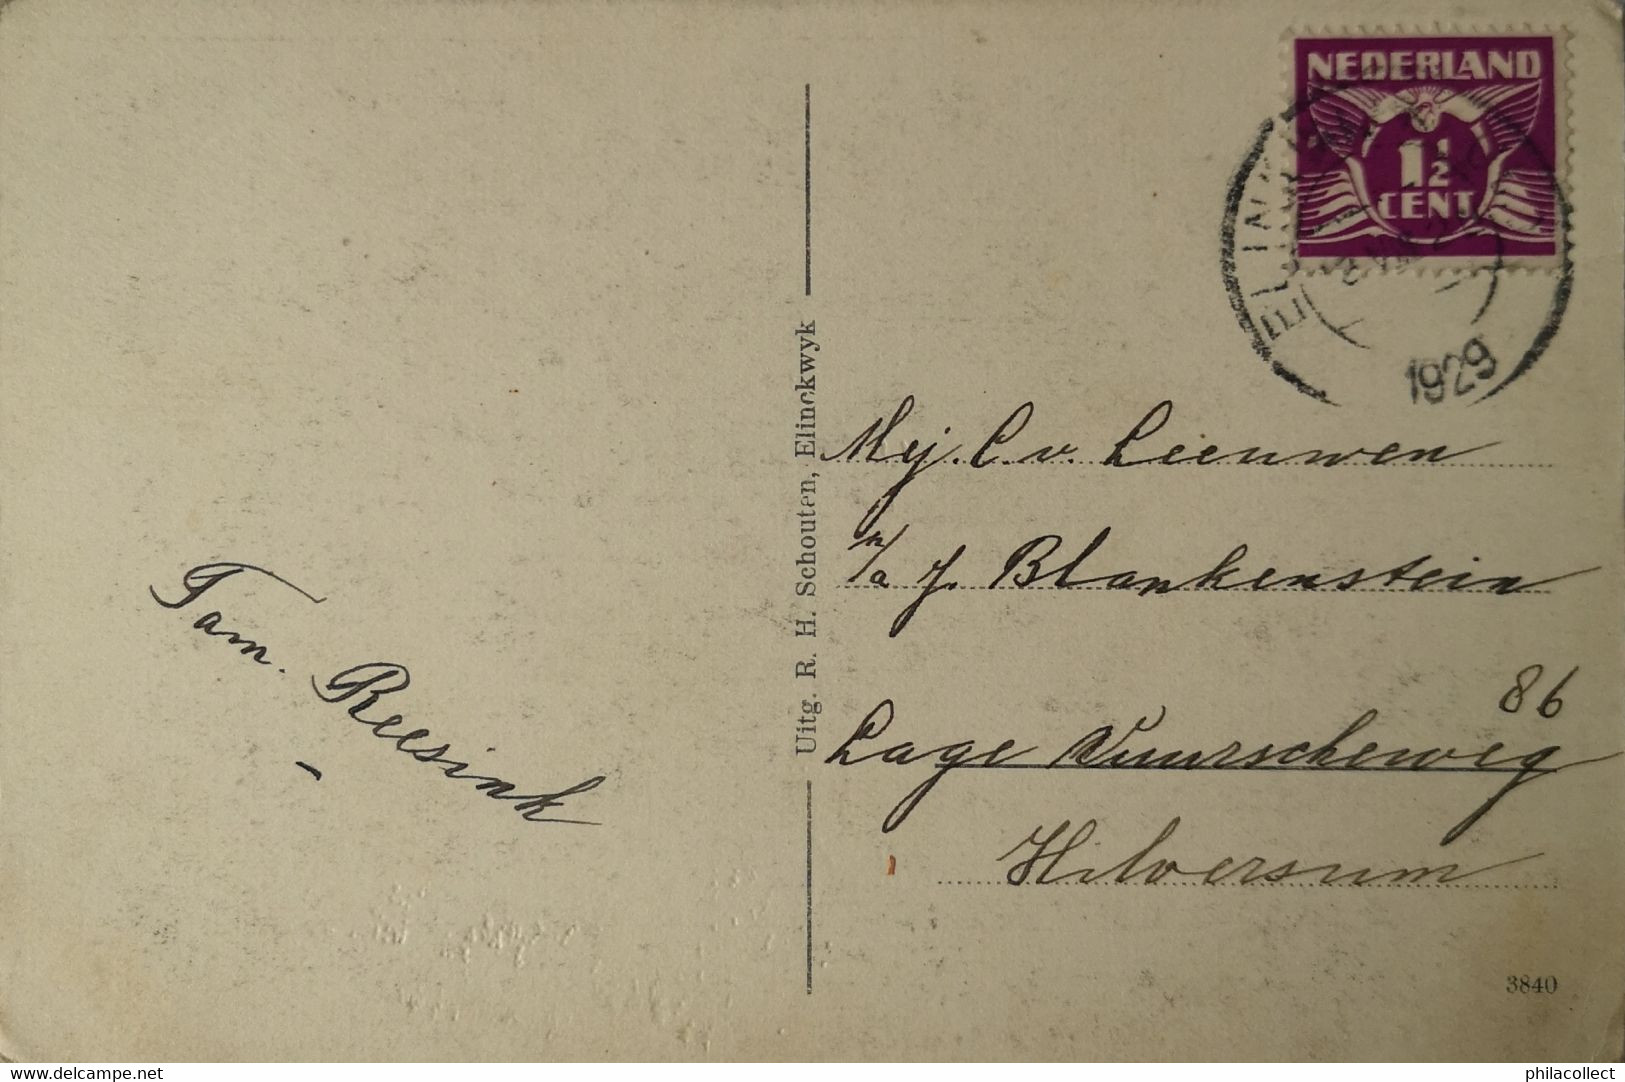 NEDERLAND
1½
CENT
1929
Uitg. R. H. Schouten, Elinckwyk
Mej. C. v. Leeuwen
p/a J. Blankenstein
86
Lage Vuurscheweg
Hilversum
Fam. Reesink
3840
www.delcampe.net
philacollect